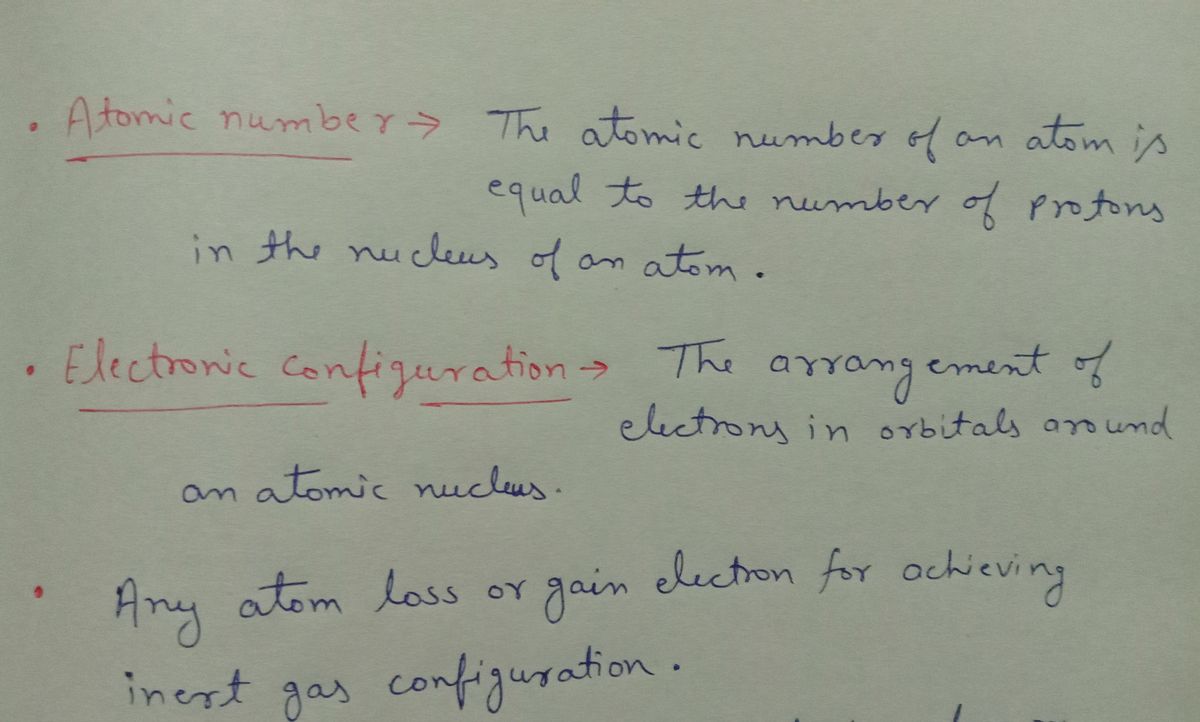 • Atomic number → The atomic number of an atom is
equal to the number of protons
in the nucleus of an atom.
• Electronic configuration → The arrangement of
electrons in orbitals around
an atomic nucleus.
• Any atom loss or gain electron for achieving
inert gas configuration.